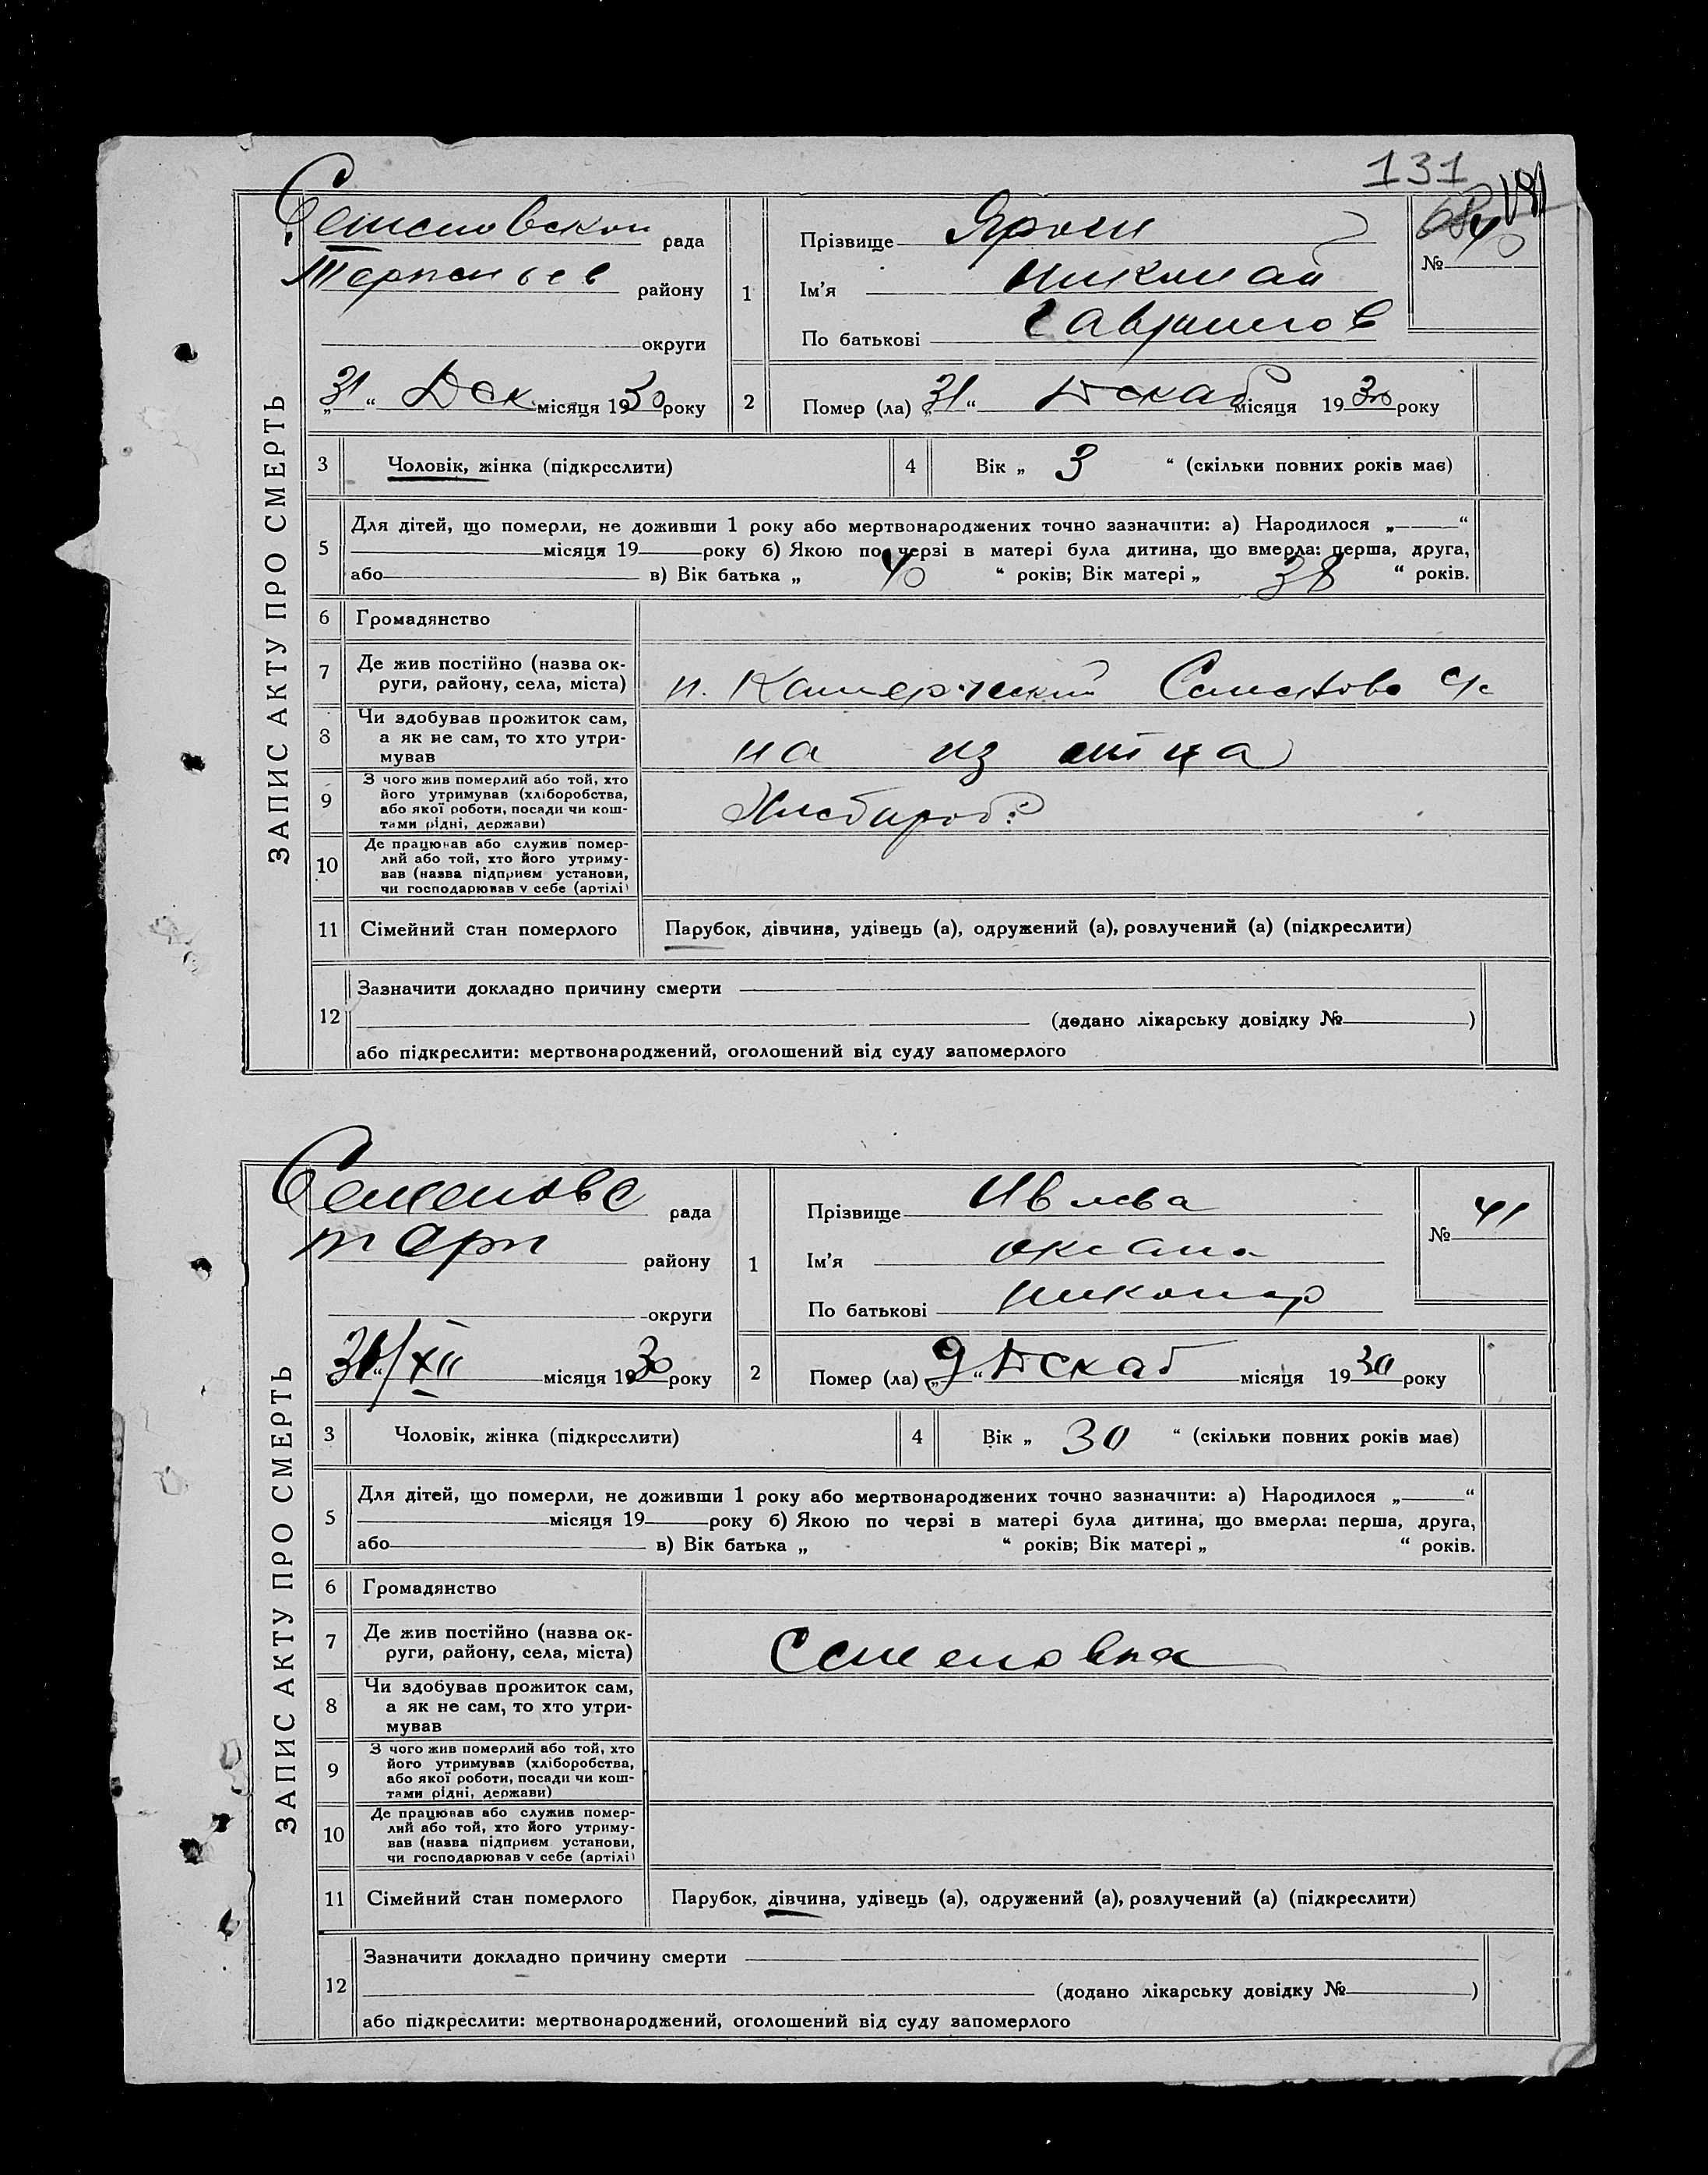 131
Семеновской рада
Терпеньев району
округи
„31“ Дек місяця 1930 року
ЗАПИС АКТУ ПРО СМЕРТЬ
1
Прізвище
Ім’я Николай
По батькові Гаврилов
№ 40
2 Помер (ла) „31“ Декаб місяця 1930 року
3 Чоловік, жінка (підкреслити)
4 Вік „ 3 “ (скільки повних років має)
5 Для дітей, що померли, не доживши 1 року або мертвонароджених точно зазначити: а) Народилося „ “
місяця 19 року б) Якою по черзі в матері була дитина, що вмерла: перша, друга,
або в) Вік батька „ 40 “ років; Вік матері „ 38 “ років.
6 Громадянство
7 Де жив постійно (назва ок-
руги, району, села, міста)
8 Чи здобував прожиток сам,
а як не сам, то хто утри-
мував
на из отца
9 З чого жив померлий або той, хто
його утримував (хліборобства,
або якої роботи, посади чи кош-
тами рідні, держави)
10 Де працював або служив помер-
лий або той, хто його утриму-
вав (назва підприєм установи,
чи господарював у себе (артілі)
11 Сімейний стан померлого Парубок, дівчина, удівець (а), одружений (а), розлучений (а) (підкреслити)
12 Зазначити докладно причину смерти
(додано лікарську довідку № )
або підкреслити: мертвонароджений, оголошений від суду запомерлого
Семеновс рада
терп району
округи
31/XII місяця 1930 року
ЗАПИС АКТУ ПРО СМЕРТЬ
1
Прізвище Ивлева
Ім’я Оксана
По батькові Никонор
№ 41
2 Помер (ла) „9“ Декаб місяця 1930 року
3 Чоловік, жінка (підкреслити)
4 Вік „ 30 “ (скільки повних років має)
5 Для дітей, що померли, не доживши 1 року або мертвонароджених точно зазначити: а) Народилося „ “
місяця 19 року б) Якою по черзі в матері була дитина, що вмерла: перша, друга,
або в) Вік батька „ “ років; Вік матері „ “ років.
6 Громадянство
7 Де жив постійно (назва ок-
руги, району, села, міста)
Семеновка
8 Чи здобував прожиток сам,
а як не сам, то хто утри-
мував
9 З чого жив померлий або той, хто
його утримував (хліборобства,
або якої роботи, посади чи кош-
тами рідні, держави)
10 Де працював або служив помер-
лий або той, хто його утриму-
вав (назва підприєм установи,
чи господарював у себе (артілі)
11 Сімейний стан померлого Парубок, дівчина, удівець (а), одружений (а), розлучений (а) (підкреслити)
12 Зазначити докладно причину смерти
(додано лікарську довідку № )
або підкреслити: мертвонароджений, оголошений від суду запомерлого